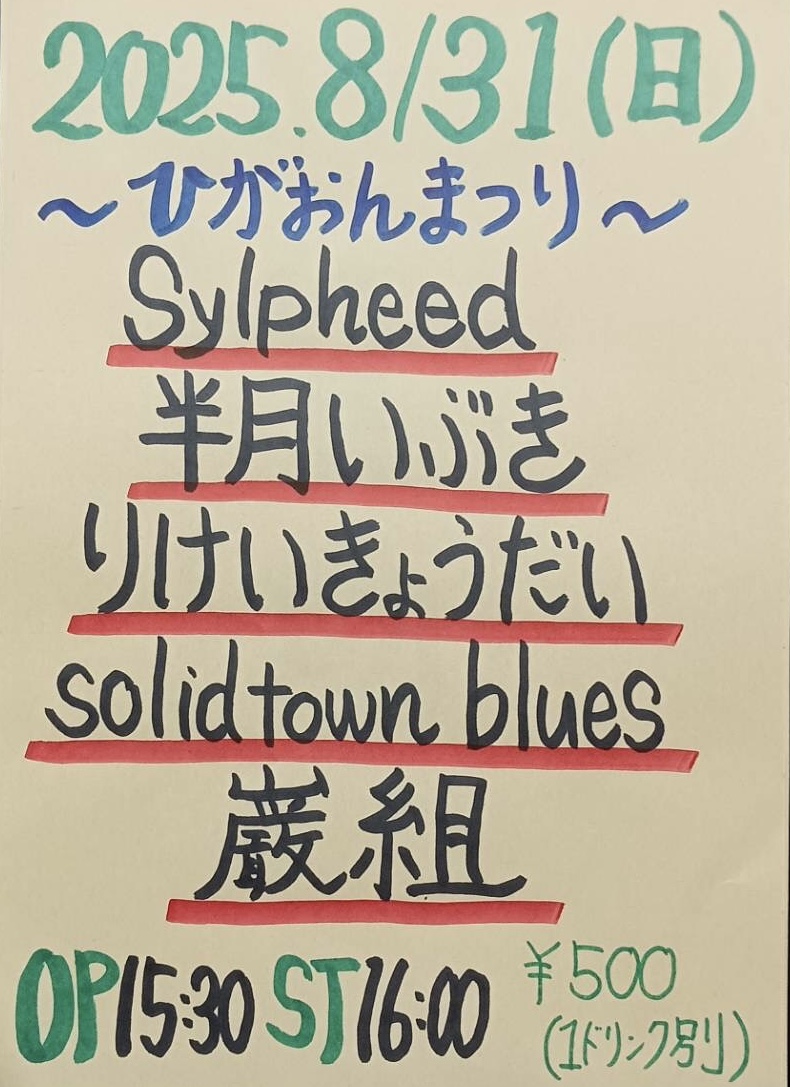 2025.8/31(日)
～ひがおんまつり～
Sylpheed
半月いぶき
りけいきょうだい
solidtown blues
巌組
OP15:30 ST16:00 ¥500
(1ドリンク別)